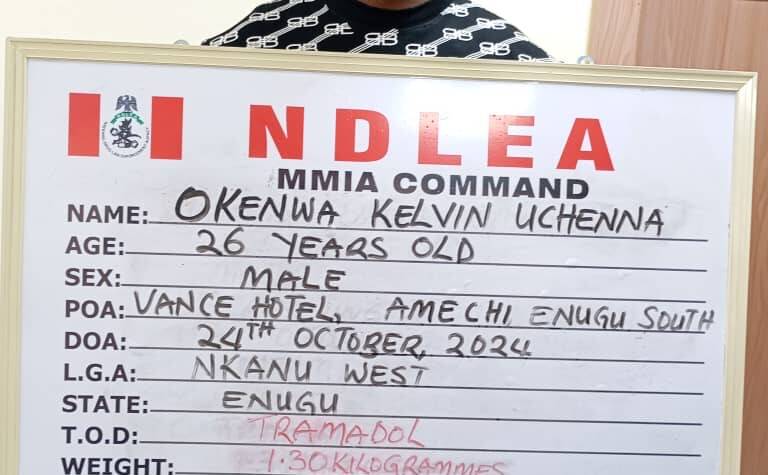 NDLEA
MMIA COMMAND
NAME: OKENWA KELVIN UCHENNA
AGE: 26 YEARS OLD
SEX: MALE
POA: VANCE HOTEL, AMECHI, ENUGU SOUTH
DOA: 24TH OCTOBER, 2024
L.G.A: NKANU WEST
STATE: ENUGU
T.O.D: TRAMADOL
WEIGHT: 1.30KILOGRAMMES